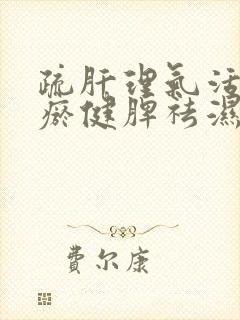 疏肝理氣活
瘀健脾祛濕
費尔康